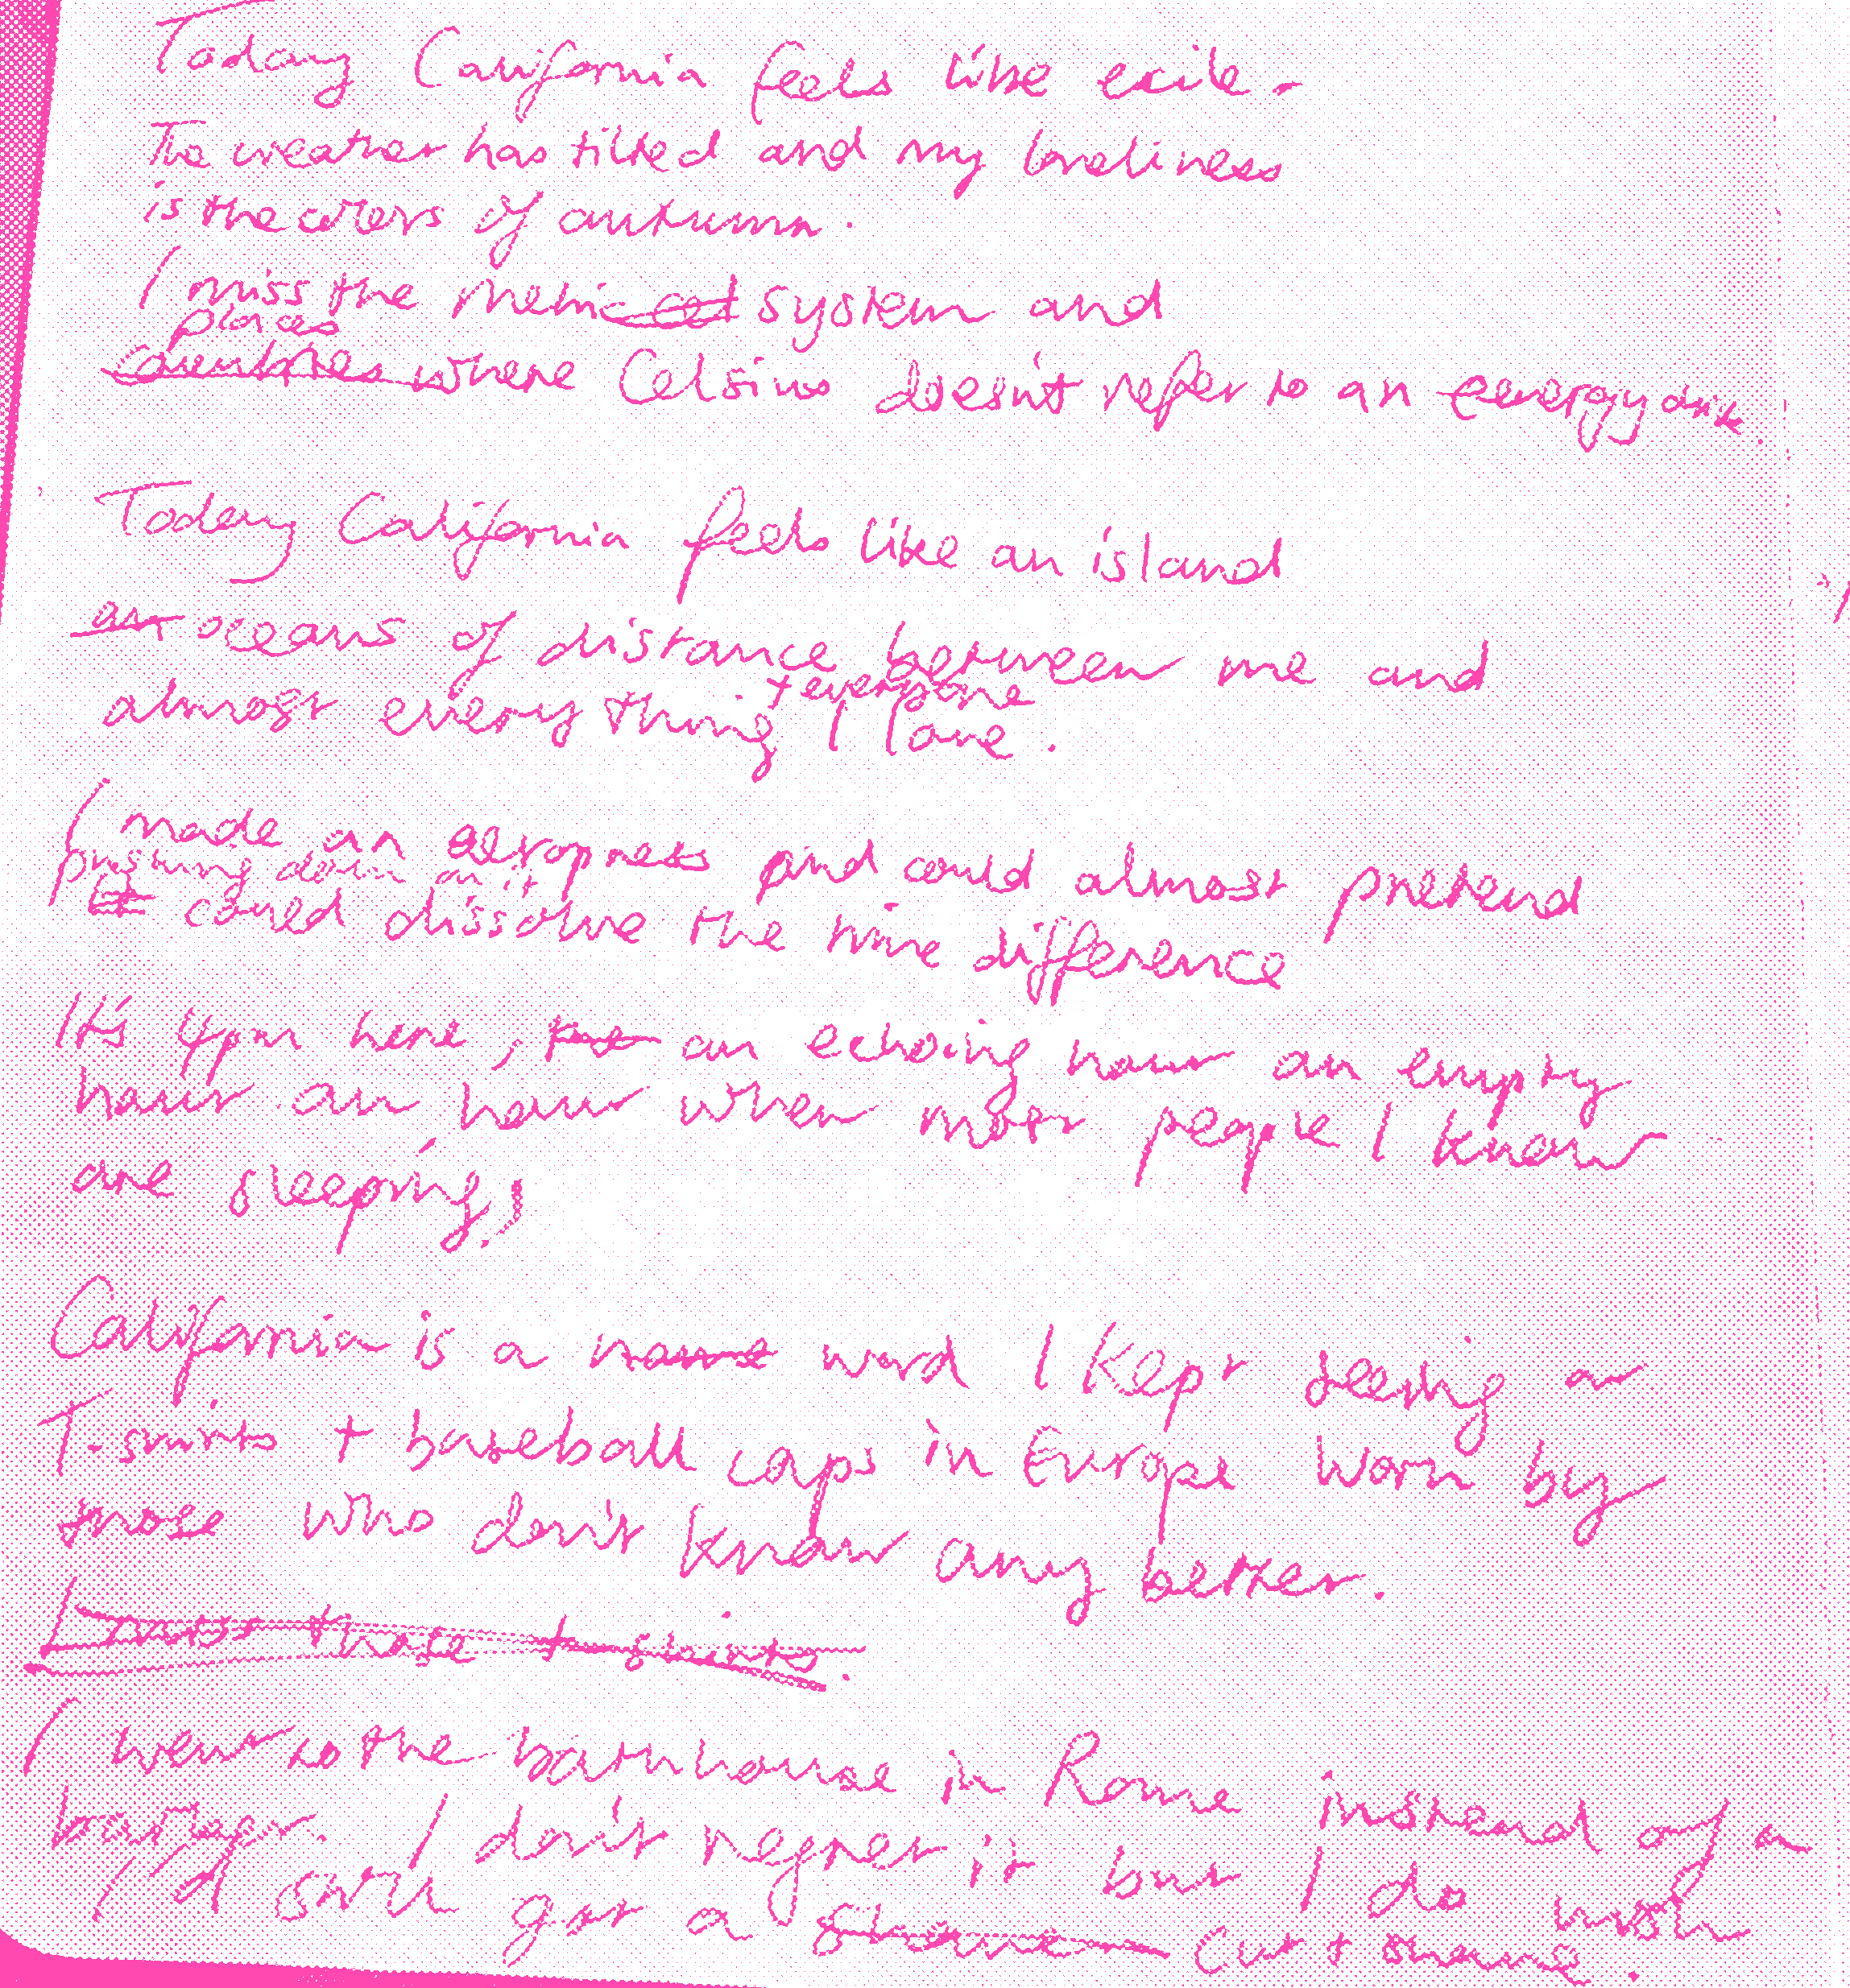 Today California feels like exile.
The weather has tilted and my loneliness
is the colors of autumn.
I miss the metric system and
places
countries where Celsius doesn't refer to an energy drink.
Today California feels like an island
an oceans of distance between me and
+ everyone
almost everything I love.
I made an aeropress and could almost pretend
pushing down on it
It could dissolve the time difference
It's 4pm here, an echoing hour an empty
hour an hour when most people I know
are sleeping,
California is a name word I kept seeing on
T-shirts + baseball caps in Europe worn by
those who don't know any better.
I miss those t-shirts.
I went to the bathhouse in Rome instead of a
barber. I don't regret it but I do wish
I'd still got a shave cut + shave.